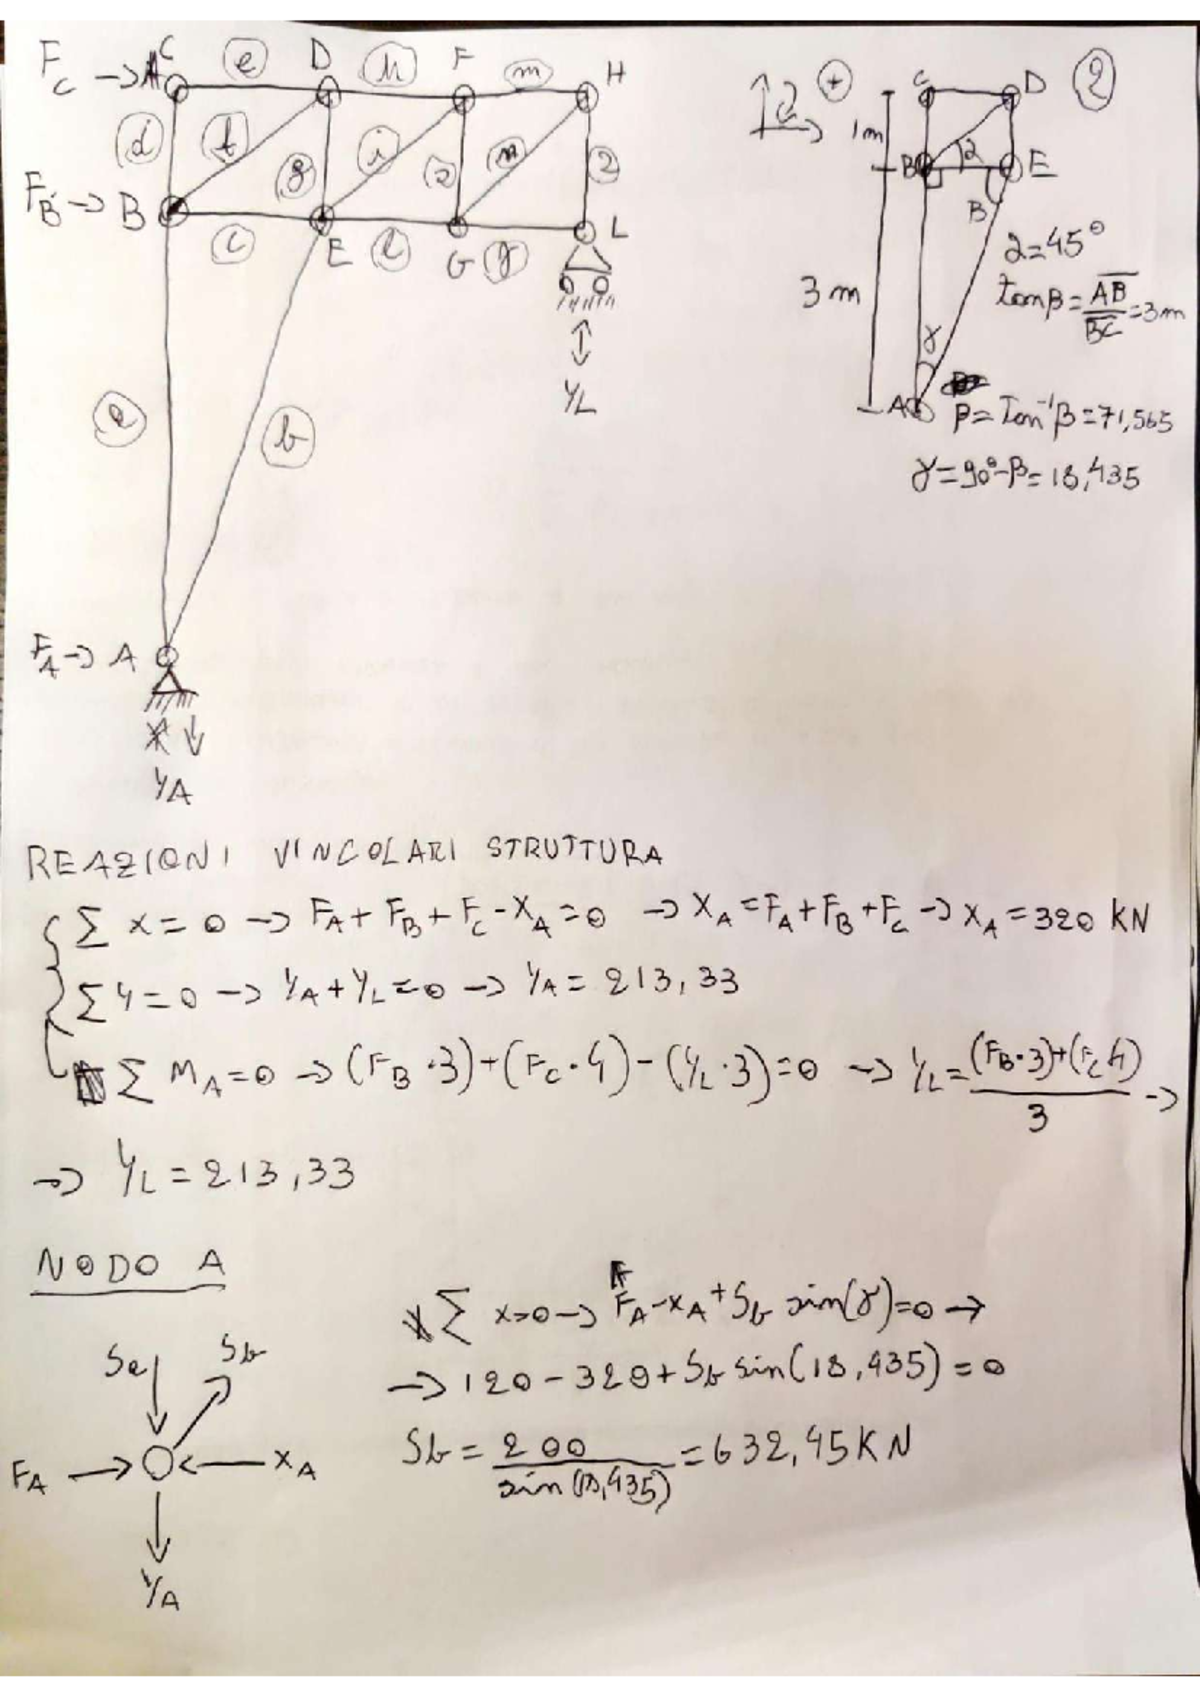 F_C → C e D h F m H
d f g i 2 n 2
F_B → B c E l G g L
Y_L
a b
F_A → A
Y_A
C D 2
1m
B α E
B
3m
α=45°
tanβ = AB/BC = 3m
γ
A
β = Tan⁻¹β = 71,565
γ = 90° - β = 18,435
REAZIONI VINCOLARI STRUTTURA
Σ x = 0 → F_A + F_B + F_C - X_A = 0 → X_A = F_A + F_B + F_C → X_A = 320 KN
Σ Y = 0 → Y_A + Y_L = 0 → Y_A = 213,33
Σ M_A = 0 → (F_B · 3) + (F_C · 4) - (Y_L · 3) = 0 → Y_L = (F_B · 3) + (F_C 4) / 3 →
→ Y_L = 213,33
NODO A
Σ x=0 → F_A - x_A + S_b sin(γ) = 0 →
Sa Sb
→ 120 - 320 + S_b sin(18,435) = 0
F_A X_A
S_b = 200 / sin(18,435) = 632,45 KN
Y_A